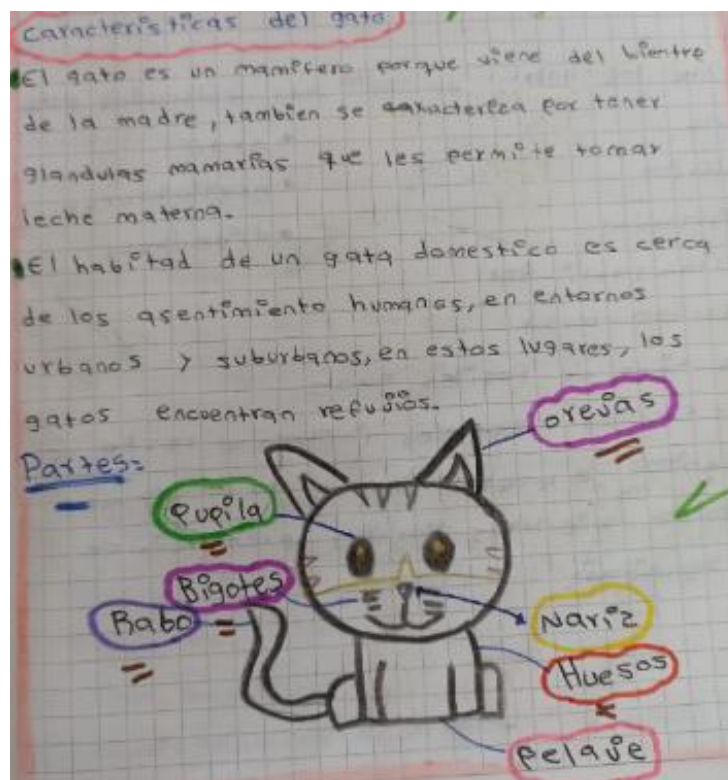 Caracteristicas del gato
El gato es un mamifero porque viene del bientre
de la madre, tambien se caracteriza por tener
glandulas mamarias que les permite tomar
leche materna.
El habitad de un gata domestico es cerca
de los asentimiento humanos, en entornos
urbanos y suburbanos, en estos lugares, los
gatos encuentran refujios.
Partes:
orejas
Pupila
Bigotes
Rabo
Nariz
Huesos
Pelaje